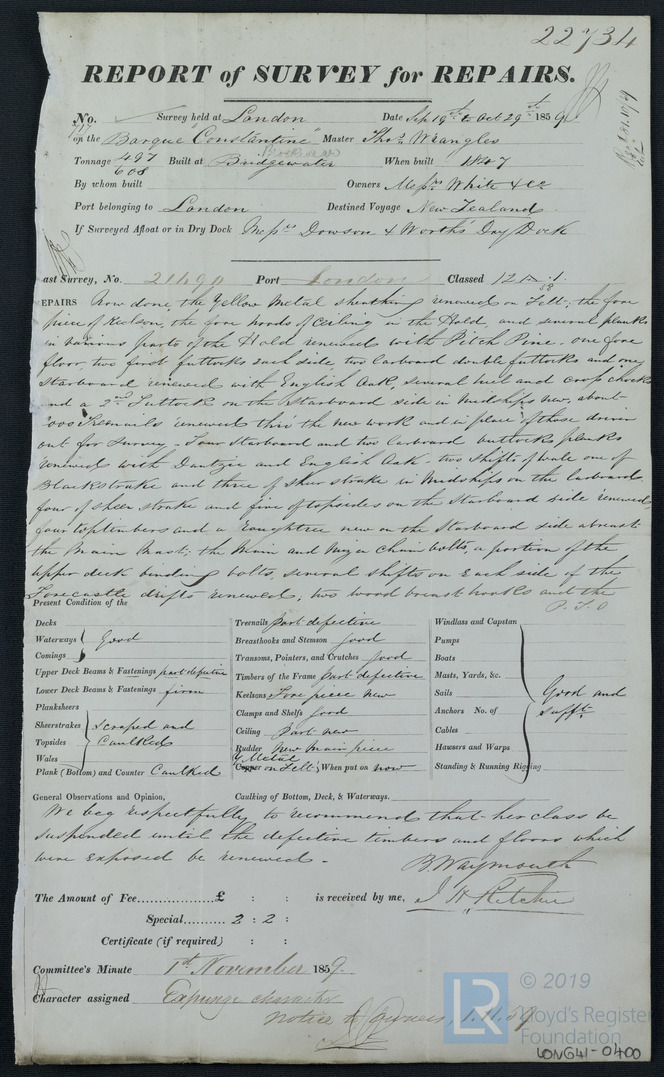 22734
REPORT of SURVEY for REPAIRS.
No. Survey held at London Date Sep 19th to Oct 29th 1859
on the Barque "Constantine" Master Thos. Wrangles
Tonnage 497 Built at Bridgewater When built 1847
608
By whom built Owners Messrs White & Co
Port belonging to London Destined Voyage New Zealand
If Surveyed Afloat or in Dry Dock Messrs Dowson & Worth's Dry Dock
ast Survey, No. 21690 Port London Classed 12
EPAIRS Now done the Yellow Metal sheathing renewed on Felt; the fore
piece of Keelson, the fore hoods of Ceiling in the Hold, and several planks
in various parts of the Hold renewed with Pitch Pine. one fore
floor, two first futtocks each side, two larboard double futtocks and one
Starboard renewed with English Oak, several heel and cross chocks
nd a 2nd Futtock on the Starboard side in Midships new, about
000 Treenails renewed thro the new work and in place of those driven
out for Survey - Four Starboard and two Larboard buttocks planks
renewed with Dantzic and English Oak - two shifts of wale one of
Blackstrake and three of sheerstrake in Midships on the Larboard
four of sheer strake and five of topsides on the Starboard side renewed,
four toptimbers and a Roughtree new on the Starboard side abreast
the Main Mast; the Main and Mizen Chain bolts, a portion of the
upper deck binding bolts, several shifts on each side of the
Forecastle drifts renewed, two wood breast hooks and the
P.T.O
Present Condition of the
Decks
Waterways Good
Comings
Upper Deck Beams & Fastenings part defective
Lower Deck Beams & Fastenings firm
Planksheers
Sheerstrakes Scraped and
Topsides Caulked
Wales
Plank (Bottom) and Counter Caulked
Treenails Part defective
Breasthooks and Stemson Good
Transoms, Pointers, and Crutches Good
Timbers of the Frame Part defective
Keelsons Fore piece new
Clamps and Shelfs Good
Ceiling Part new
Rudder New Main piece
Y Metal
Copper on Felt; When put on now
Windlass and Capstan
Pumps
Boats
Masts, Yards, &c.
Sails Good and
Anchors No. of Sufft
Cables
Hawsers and Warps
Standing & Running Rigging
General Observations and Opinion, Caulking of Bottom, Deck, & Waterways.
We beg respectfully to recommend that her class be
suspended until the defective timbers and floors which
were exposed be renewed -
B. Waymouth
J H Ritchie
The Amount of Fee £ : : is received by me,
Special 2 : 2 :
Certificate (if required) : :
Committee's Minute 1st November 1859
Character assigned Expunge character
notice to Owners, 1.11.59
LR
© 2019
Lloyd's Register
Foundation
LONG41-0400